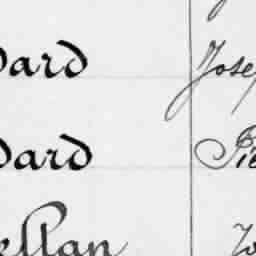 ward Jose
ward Pie
ellan